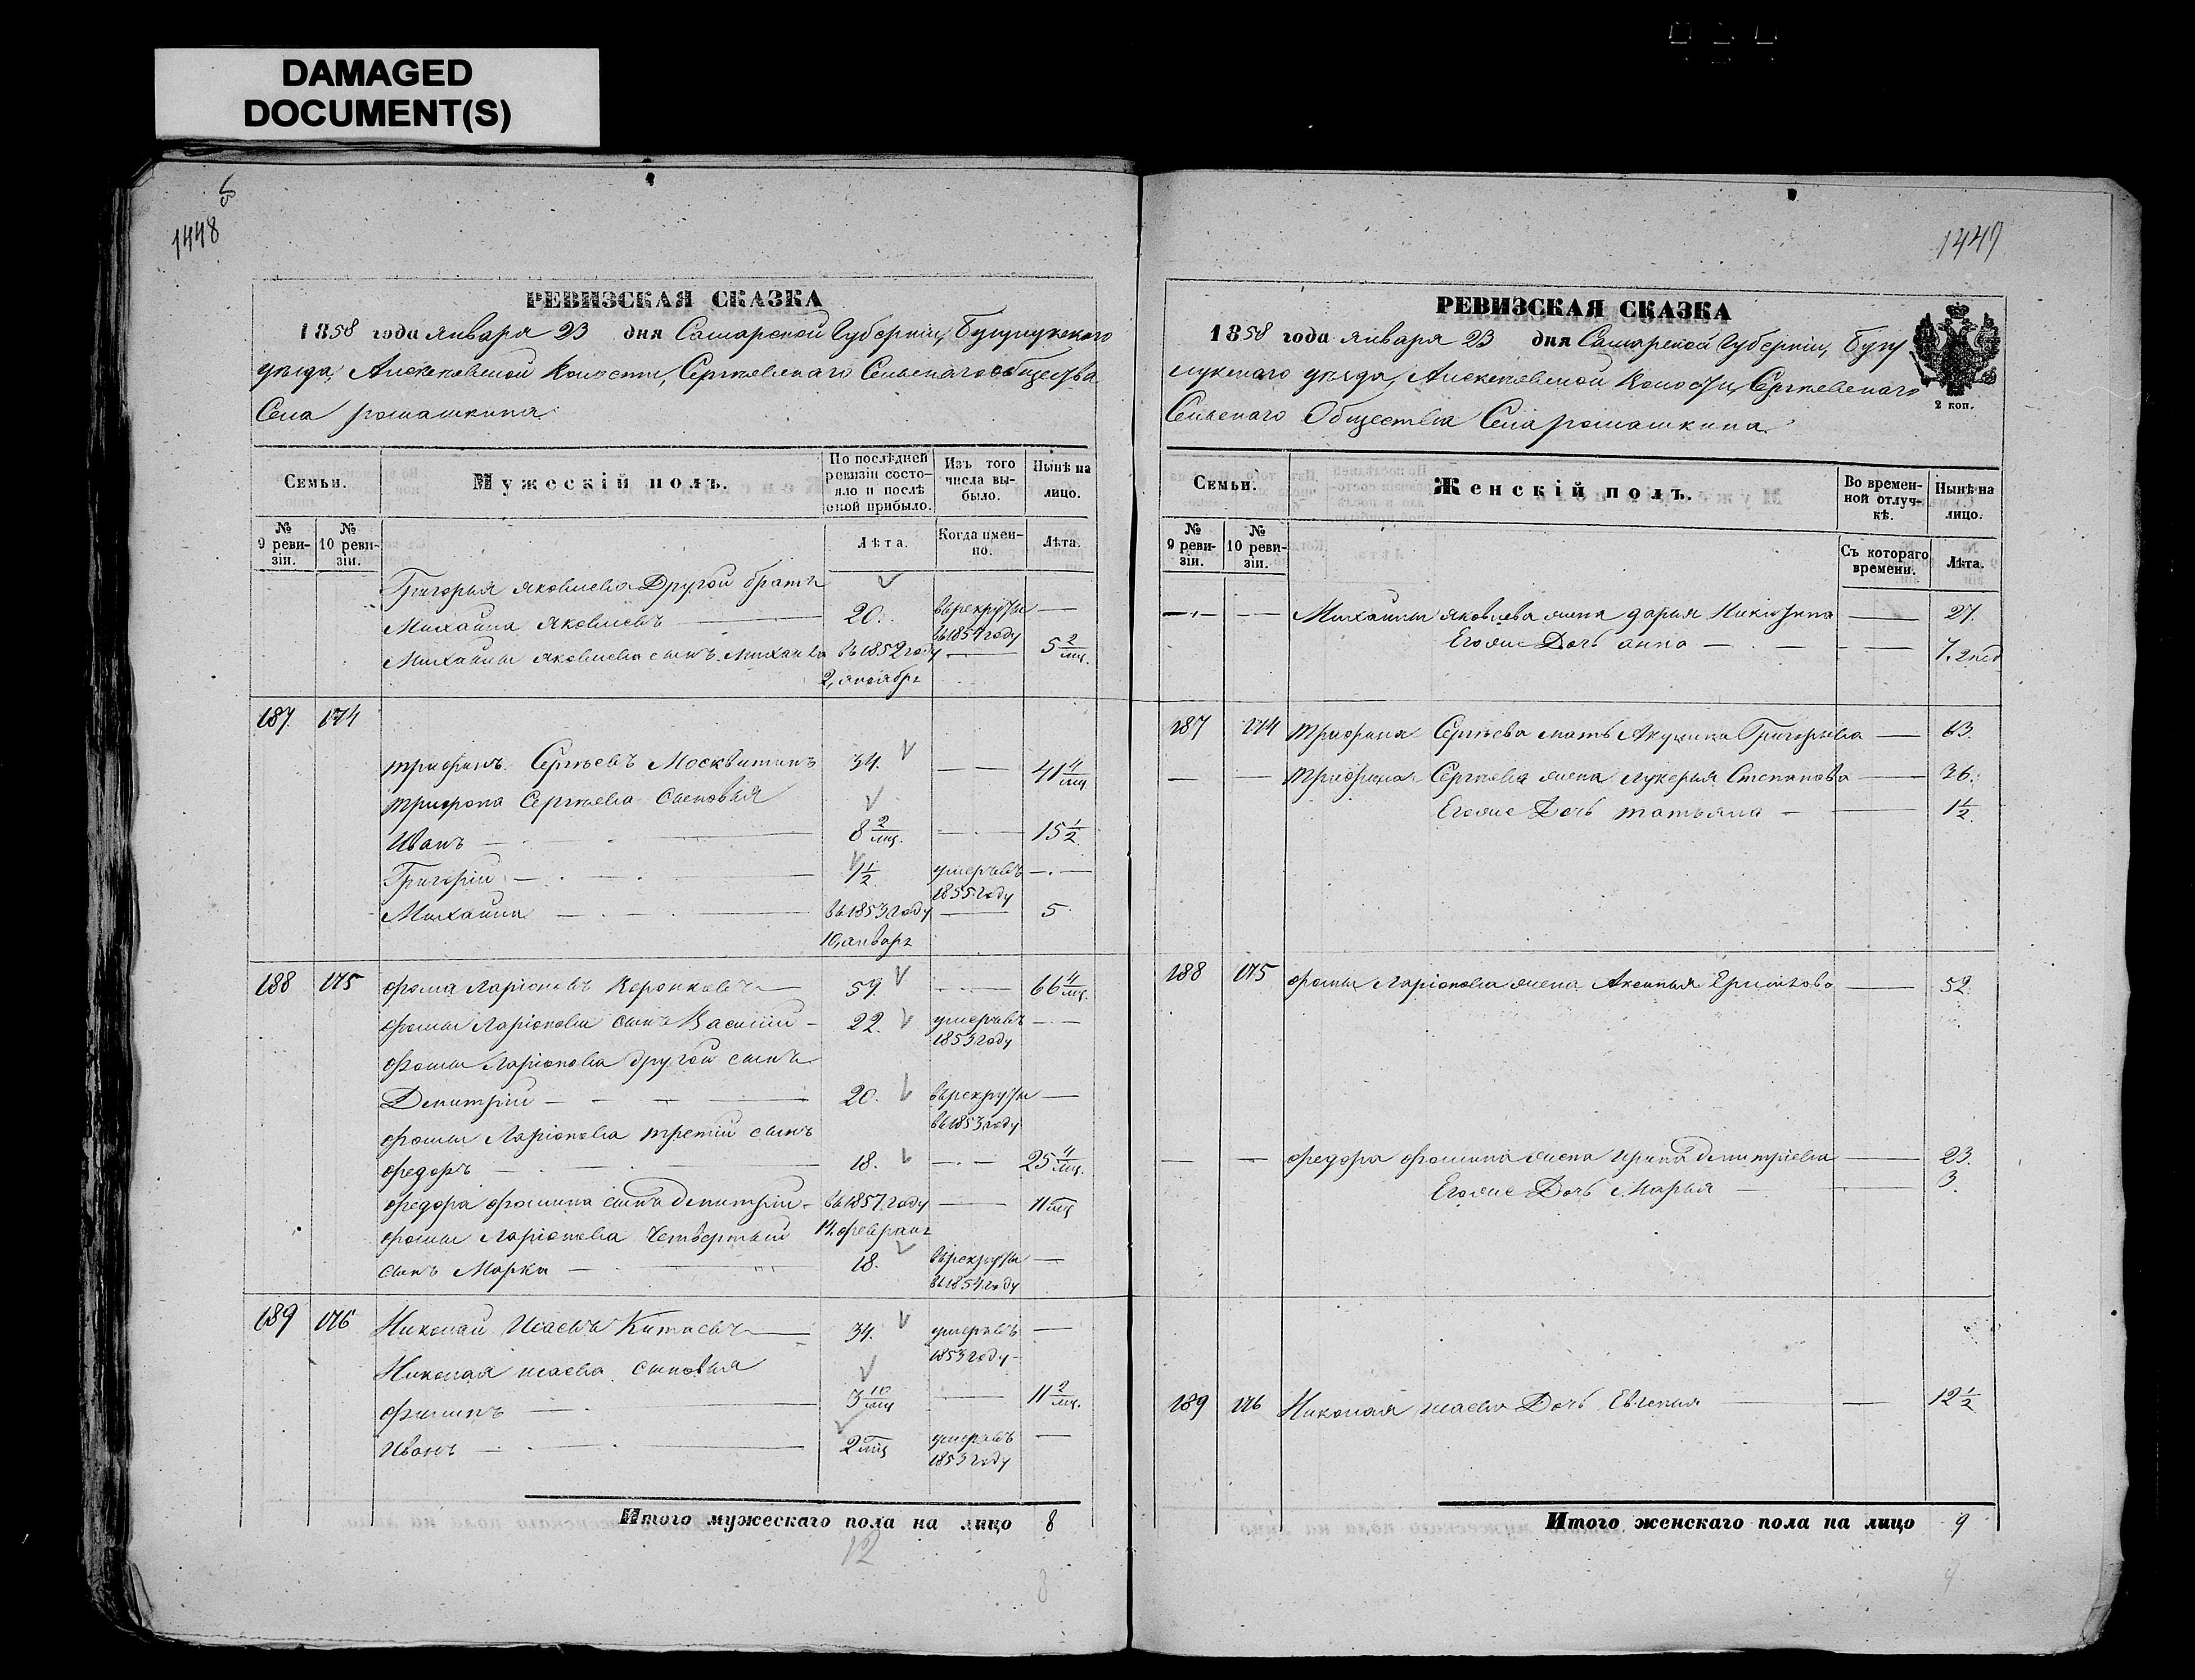 DAMAGED
DOCUMENT(S)
1448
РЕВИЗСКАЯ СКАЗКА
1858 года января 23 дня Самарской Губерніи, Бузулукскаго
уѣзда, Алексѣевской Волости, Сергіевскаго Сельскаго общества
Села ромашкина
Семьи.
Мужескій полъ.
По послѣдней ревизіи состояло и послѣ оной прибыло.
Изъ того числа выбыло.
Нынѣ на лицо.
№ 9 ревизіи.
№ 10 ревизіи.
Лѣта.
Когда именно.
Лѣта.
Григорья яковлева Другой братъ
Михаила Яковлевъ 20. въ рекруты въ 1857 году —
Михаилы яковлева сынъ Михаила въ 1852 году 2, ноября — 5 2/мц.
187 174
трифонъ Сергѣевъ Москвитинъ 34. — 41 4/мц
трифона Сергѣева сыновья
Иванъ — 8 2/мц. — 15 1/2
Григорій — 1/2 умеръ въ 1855 году —
Михаила — въ 1853 году 10, января — 5
188 175 фома Ларіоновъ Воронковъ 59. — 66 4/мц.
фомы Ларіонова сынъ Василій 22. умеръ въ 1853 году —
фомы Ларіонова другой сынъ
Дмитрій — 20. въ рекруты въ 1853 году —
фомы Ларіонова третій сынъ
федоръ — 18. — 25 4/мц.
федора фомина сынъ дмитрій въ 1857 году 14, февраля — 11 мц
фомы Ларіонова четвертый
сынъ Марка — 18. въ рекруты въ 1854 году —
189 176 Николай Исаевъ Китаевъ 34. умеръ въ 1853 году —
Николая исаева сыновья
филипъ — 3 10/мц — 11 2/мц.
Иванъ — 2 мц умеръ въ 1853 году —
Итого мужескаго пола на лицо 8
12
8
1449
РЕВИЗСКАЯ СКАЗКА
1858 года января 23 дня Самарской Губерніи, Бузу
лукскаго уѣзда, Алексѣевской Волости, Сергіевскаго
Сельскаго Общества Села ромашкина
2 коп.
Семьи.
Женскій полъ.
Во временной отлучкѣ.
Нынѣ на лицо.
№ 9 ревизіи.
№ 10 ревизіи.
Съ котораго времени.
Лѣта.
— — Михаилы яковлева жена дарья Никитина — 27.
Егоже Дочь анна — 7. 2 нед
187 174 трифона Сергѣева мать Акулина Григорьева — 63.
— — трифона Сергѣева жена лукерья Степанова — 36.
Егоже Дочь татьяна — 1 1/2
188 175 фомы Ларіонова жена Аксинья — 52
— — федора фомина жена ирина дмитріева — 23.
Егоже Дочь Марья — 3.
189 176 Николая исаева Дочь Евгенья — 12 1/2
Итого женскаго пола на лицо 9
9